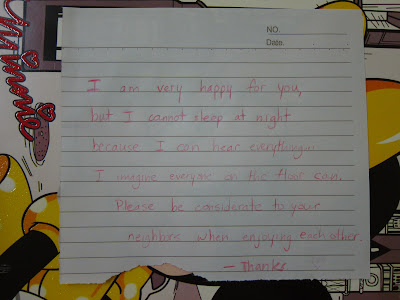 NO.
Date.
I am very happy for you,
but I cannot sleep at night
because I can hear everything...
I imagine everyone on this floor can.
Please be considerate to your
neighbors when enjoying each other.
– Thanks.